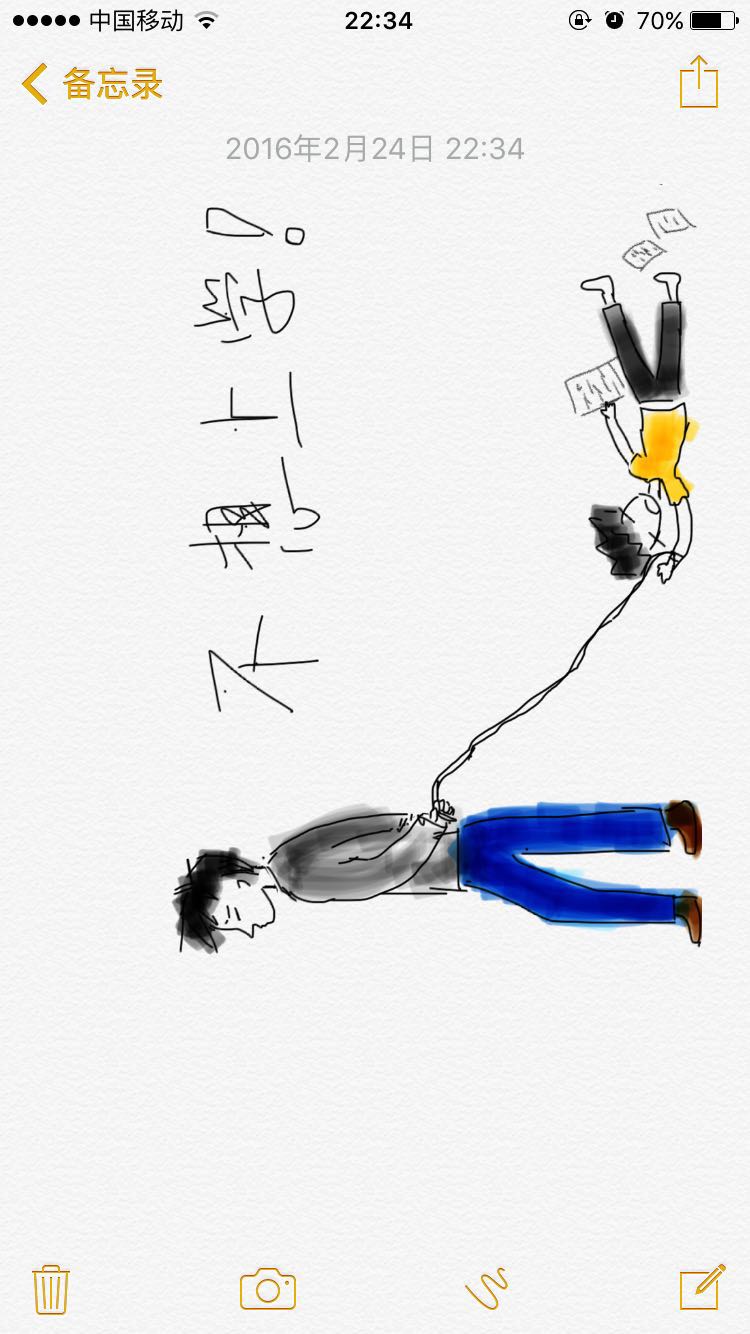 中国移动 22:34 70%
备忘录
2016年2月24日 22:34
不想上学!